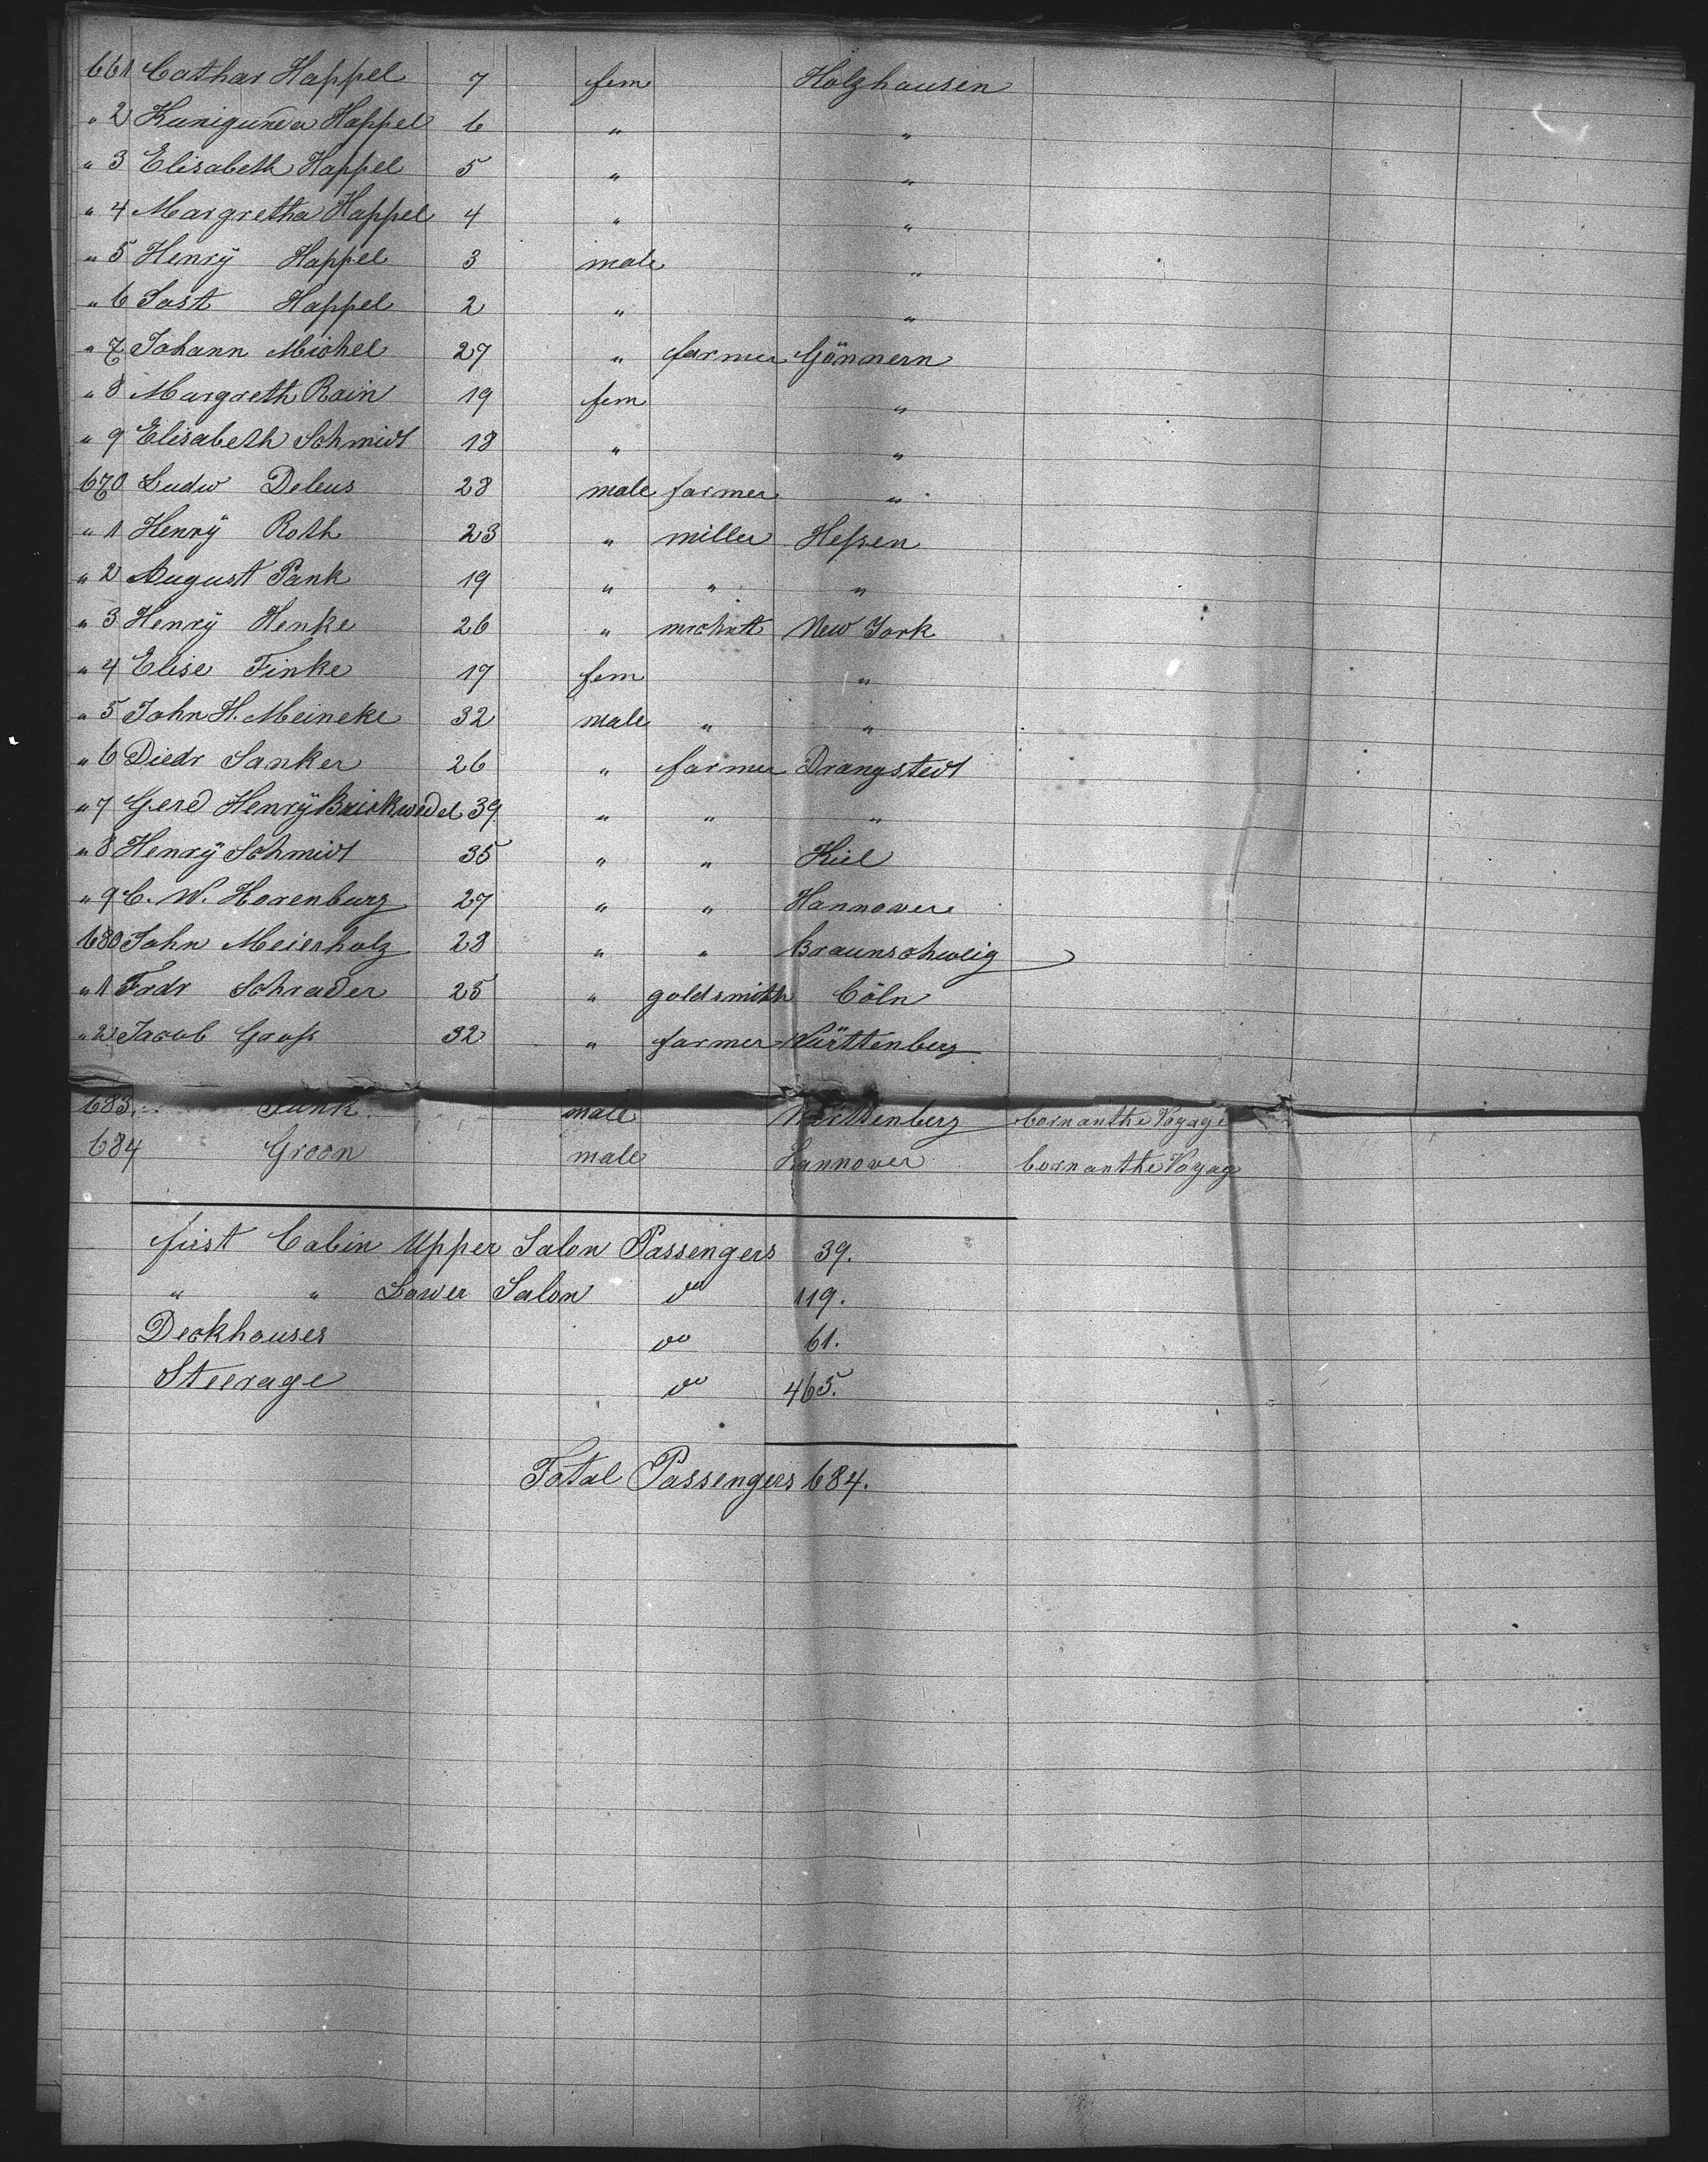 661 Cathar Happel 7 fem Holzhausen
" 2 Kunigunda Happel 6 " "
" 3 Elisabeth Happel 5 " "
" 4 Margretha Happel 4 " "
" 5 Henry Happel 3 male "
" 6 Jost Happel 2 " "
" 7 Johann Michel 27 " farmer Gönnern
" 8 Margreth Rain 19 fem "
" 9 Elisabeth Schmidt 18 " "
670 Ludw Deleus 28 male farmer "
" 1 Henry Roth 23 " miller Hessen
" 2 August Pank 19 " " "
" 3 Henry Henke 26 " mrchntt New York
" 4 Elise Finke 19 fem "
" 5 John H. Meineke 32 male " "
" 6 Diedr Sanker 26 " farmer Drangstedt
" 7 Gerd Henry Brickwedel 39 " " "
" 8 Henry Schmidt 35 " " Kiel
" 9 C. W. Horenburg 27 " " Hannover
680 John Meierholz 28 " " Braunschweig
" 1 Frdr Schrader 25 " goldsmith Cöln
" 2 Jacob Gross 32 " farmer Württenberg
683. Funk male Württenberg born on the Voyage
684 Groon male Hannover born on the Voyage
first Cabin Upper Salon Passengers 39.
" " Lower Salon do 119.
Deckhouses do 61.
Steerage do 465.
Total Passengers 684.